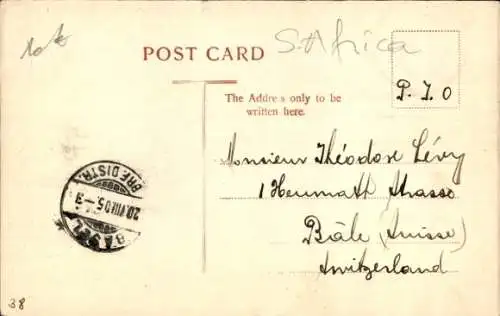 S. Africa
POST CARD
P. I. O
The Address only to be
written here.
Monsieur Théodore Lévy
1 Heumath Strasse
Bâle (Suisse)
Switzerland
BASEL
20.VIII.05.–3
BRF.DISTR.
38